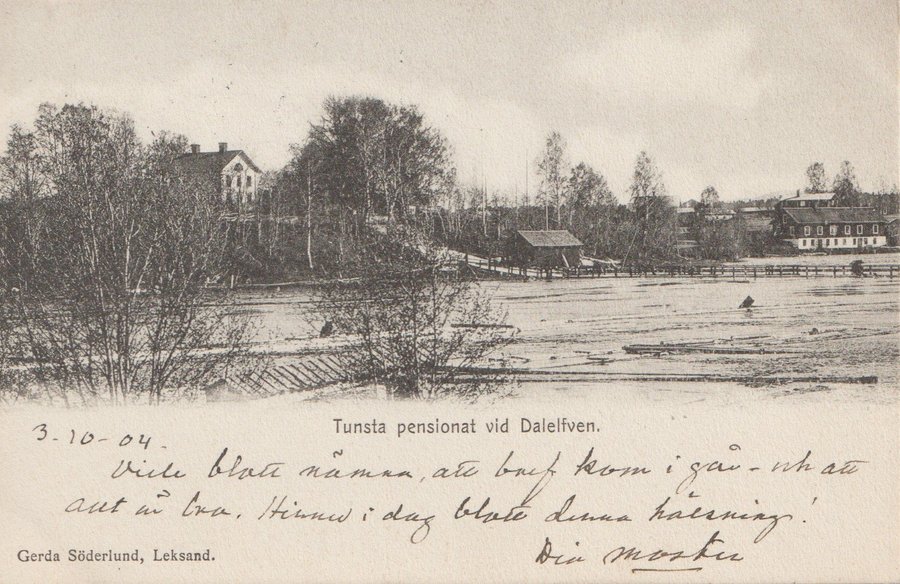 Tunsta pensionat vid Dalelfven.
3-10-04.
Ville blott nämna, att bref kom i går - och att
allt är bra. Hinner i dag blott denna hälsning!
Din moster
Gerda Söderlund, Leksand.